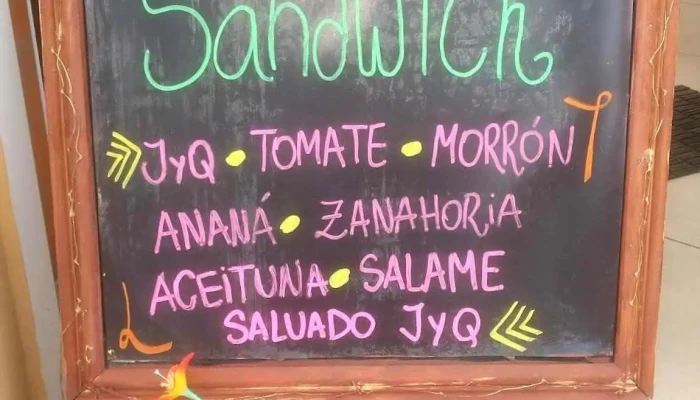 Sandwich
JyQ • TOMATE • MORRÓN
ANANÁ • ZANAHORiA
ACEiTUNA • SALAME
SALUADO JYQ